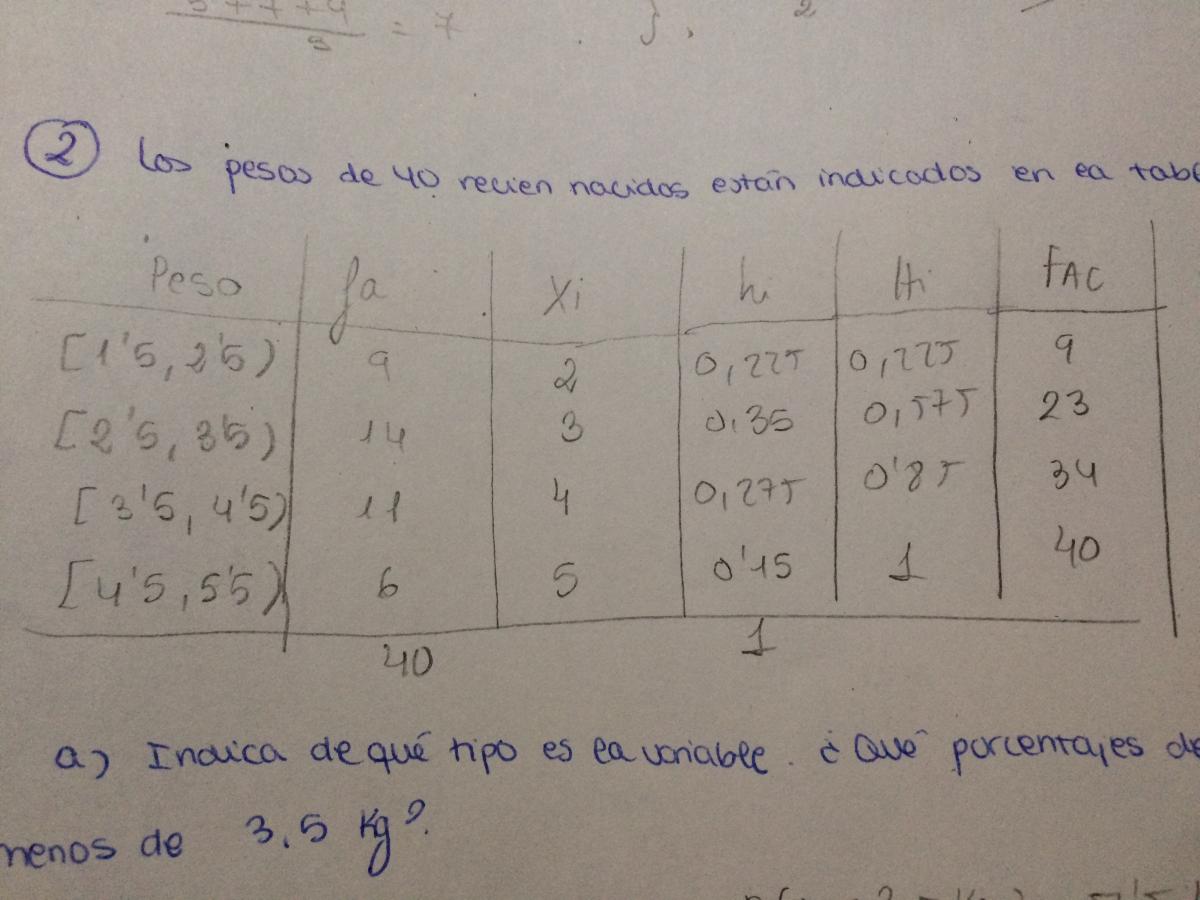 = 7
2
② Los pesos de 40 recien nacidos están indicados en la tabl
Peso fa Xi hi Hi FAC
[1'5, 2'5) 9 2 0,225 0,225 9
[2'5, 3'5) 14 3 0,35 0,575 23
[3'5, 4'5) 11 4 0,275 0'85 34
[4'5, 5'5) 6 5 0'15 1 40
40 1
a) Indica de qué tipo es la variable. ¿Qué porcentajes de
menos de 3.5 Kg?